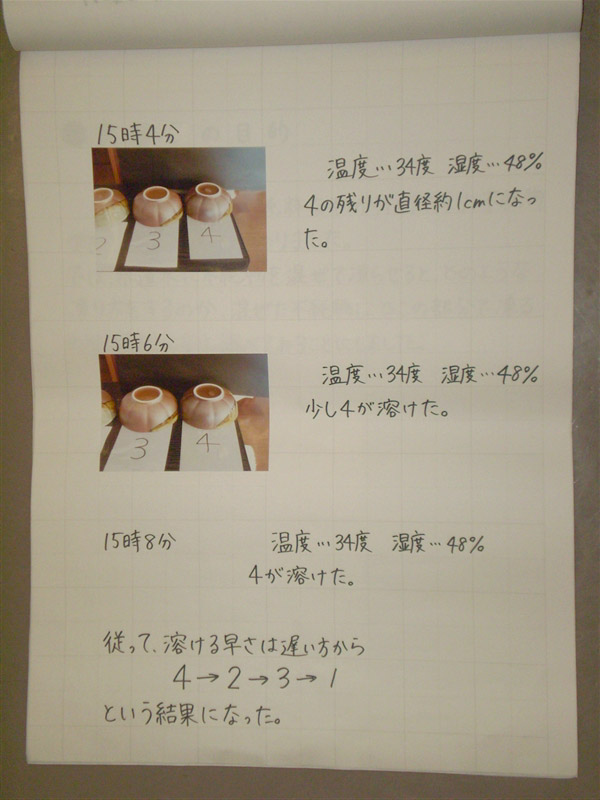 15時4分
温度…34度 湿度…48%
4の残りが直径約1cmになっ
た。
2 3 4
15時6分
温度…34度 湿度…48%
少し4が溶けた。
3 4
15時8分 温度…34度 湿度…48%
4が溶けた。
従って、溶ける早さは遅い方から
4→2→3→1
という結果になった。